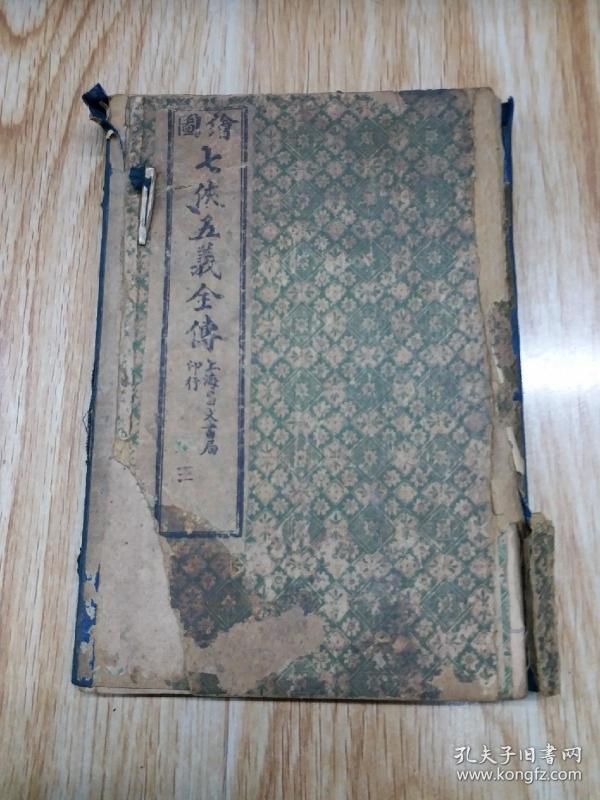 繪圖
七俠五義全傳
上海
文書局
印行
三
孔夫子旧書网
www.kongfz.com